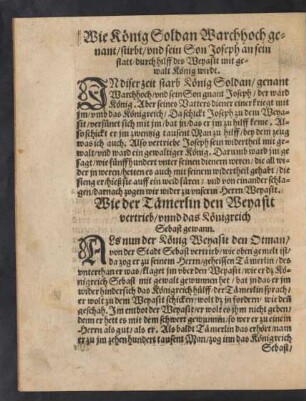 Wie König Soldan Warchhoch ge-
nant/stirbt/vnd sein Son Joseph an sein
statt/durch hilff des Weyasit mit ge-
walt König wirdt.
IN diser zeit starb König Soldan/genant
Warchhoch/vnd sein Son gnant Joseph/der ward
König. Aber seines Vatters diener einer kriegt mit
jm/vmb das Königreich/Da schickt Joseph zu dem Weya-
sit/versünet sich mit jm/bat jn das er jm zu hilff keme. Al-
so schickt er jm zwentzig tausent Man zu hilff/bey dem zeug
was ich auch. Also vertriebe Joseph sein widertheil mit ge-
walt/vnd ward ein gewaltiger König. Darumb ward jm ge-
sagt/wie fünffhundert vnter seinen dienern weren/die all wi-
der jn weren/hetten es auch mit seinem widertheil gehabt/die
fieng er/hieß sie auff ein weld füren/vnd von einander schla-
gen/darnach zogen wir wider zu vnserm Herrn Weyasit.
Wie der Tämerlin den Weyasit
vertrieb/vnnd das Königreich
Sebast gewann.
ALs nun der König Weyasit den Otman/
von der Stadt Sebast vertrieb/wie oben gemelt ist/
da zog er zu seinem Herrn geheissen Tämerlin/des
vnterthan er was/klaget jm vber den Weyasit/wie er dz Kö-
nigreich Sebast mit gewalt gewunnen het/bat jn das er jm
wider hinder sich das Königreich hülff/der Tämerlin sprach/
er wolt zu dem Weyasit schicken/wolt dz jn fordern/wie deñ
geschah. Im entbot der Weyasit/er wolt es jhm nicht geben/
denn er hett es mit dem schwert gewunnen/so wer er zu einem
Herrn als gut/als er. Als baldt Tämerlin das erhört/nam
er zu jm zehenhundert tausent Man/zog inn das Königreich
Sebast/